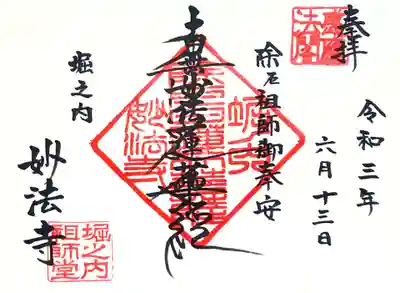 奉拝
令和三年
六月十三日
除厄祖師御奉安
南無妙法蓮華経
堀之内
妙法寺
堀之内
祖師堂